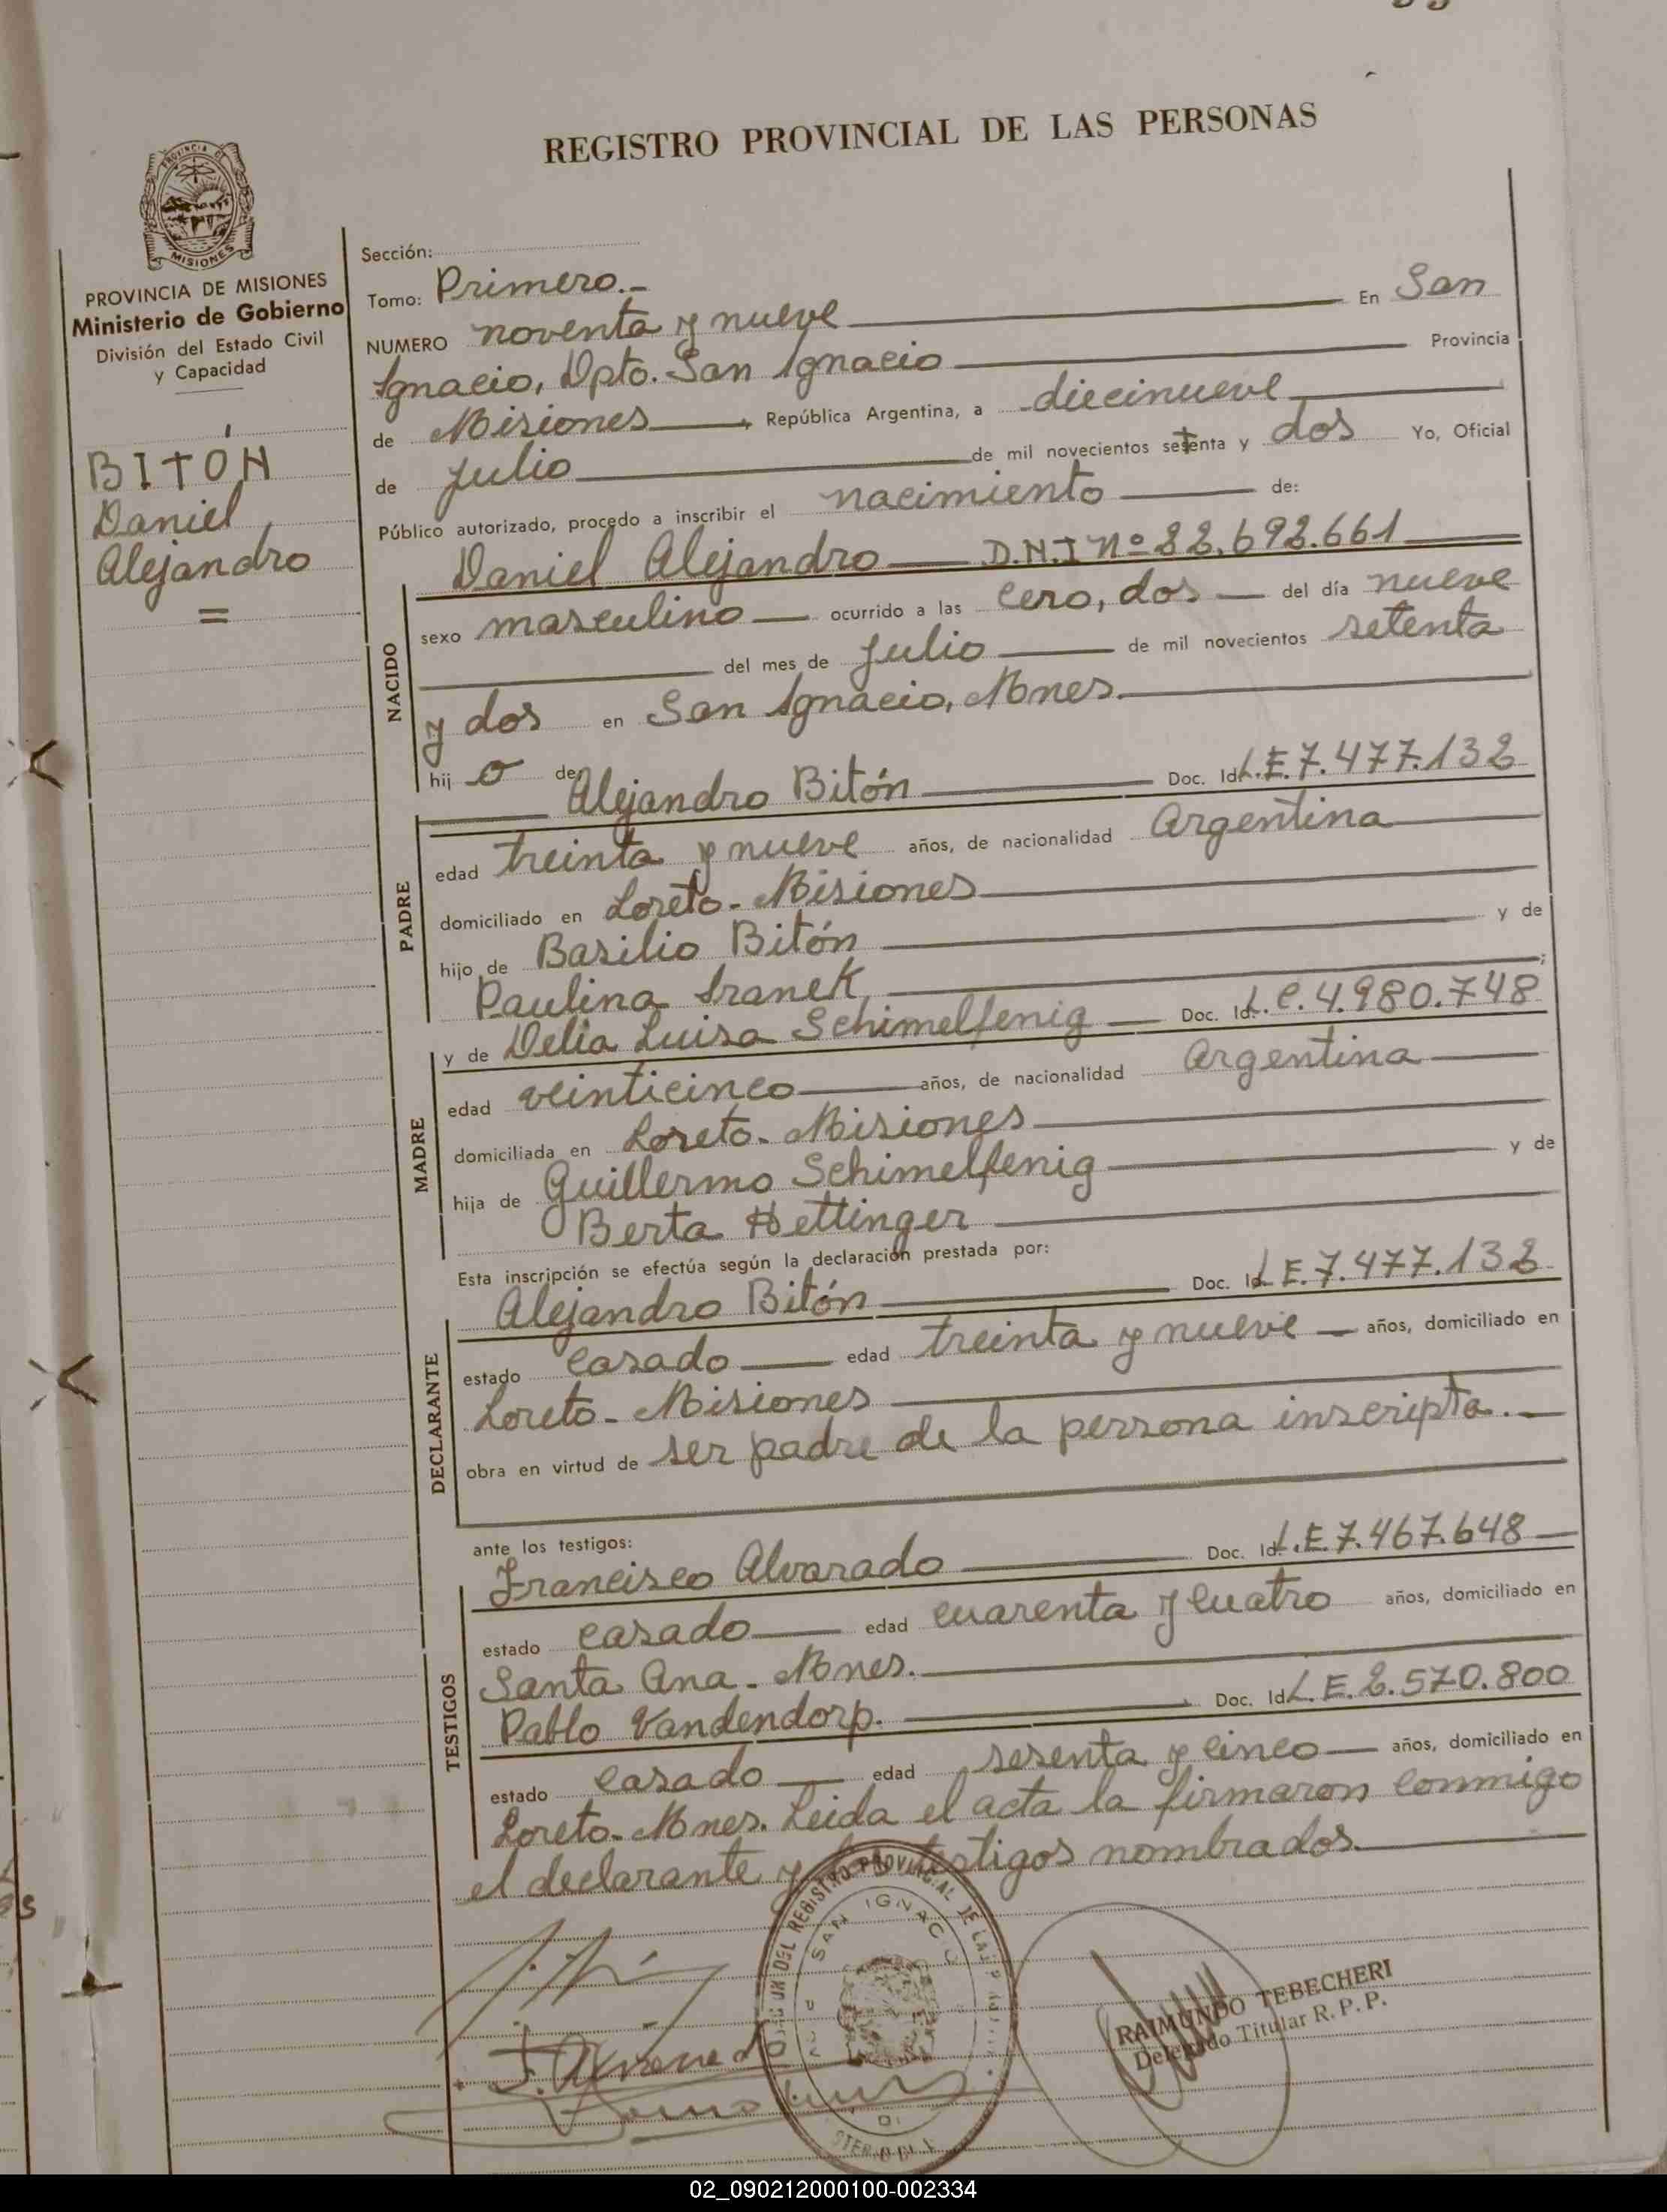 REGISTRO PROVINCIAL DE LAS PERSONAS
MISIONES
PROVINCIA DE MISIONES
Ministerio de Gobierno
División del Estado Civil
y Capacidad
BITÓN
Daniel
Alejandro
=
Sección:
Tomo: Primero.-
NUMERO noventa y nueve En San
Ignacio, Dpto. San Ignacio Provincia
de Misiones, República Argentina, a diecinueve
de Julio de mil novecientos setenta y dos Yo, Oficial
Público autorizado, procedo a inscribir el nacimiento de:
NACIDO
Daniel Alejandro D.N.I Nº 22.692.661
sexo masculino ocurrido a las cero, dos del día nueve
del mes de Julio de mil novecientos setenta
y dos en San Ignacio, Mnes.
hij o de
PADRE
Alejandro Bitón Doc. Id. L.E. 7.477.132
edad treinta y nueve años, de nacionalidad Argentina
domiciliado en Loreto - Misiones
hijo de Basilio Bitón y de
Paulina Sranek,
MADRE
y de Delia Luisa Schimelfenig Doc. Id. L.C. 4.980.748
edad veinticinco años, de nacionalidad Argentina
domiciliada en Loreto - Misiones
hija de Guillermo Schimelfenig y de
Berta Hettinger
Esta inscripción se efectúa según la declaración prestada por:
DECLARANTE
Alejandro Bitón Doc. Id. L.E. 7.477.132
estado casado edad treinta y nueve años, domiciliado en
Loreto - Misiones
obra en virtud de ser padre de la persona inscripta.
ante los testigos:
TESTIGOS
Francisco Alvarado Doc. Id. L.E. 7.467.648
estado casado edad cuarenta y cuatro años, domiciliado en
Santa Ana - Mnes.
Pablo Vandendorp. Doc. Id. L.E. 2.570.800
estado casado edad sesenta y cinco años, domiciliado en
Loreto - Mnes. Leida el acta la firmaron conmigo
el declarante y los testigos nombrados.
DEL REGISTRO PROVINCIAL DE LAS
SAN IGNACIO
RAIMUNDO TEBECHERI
Delegado Titular R. P. P.
02_090212000100-002334